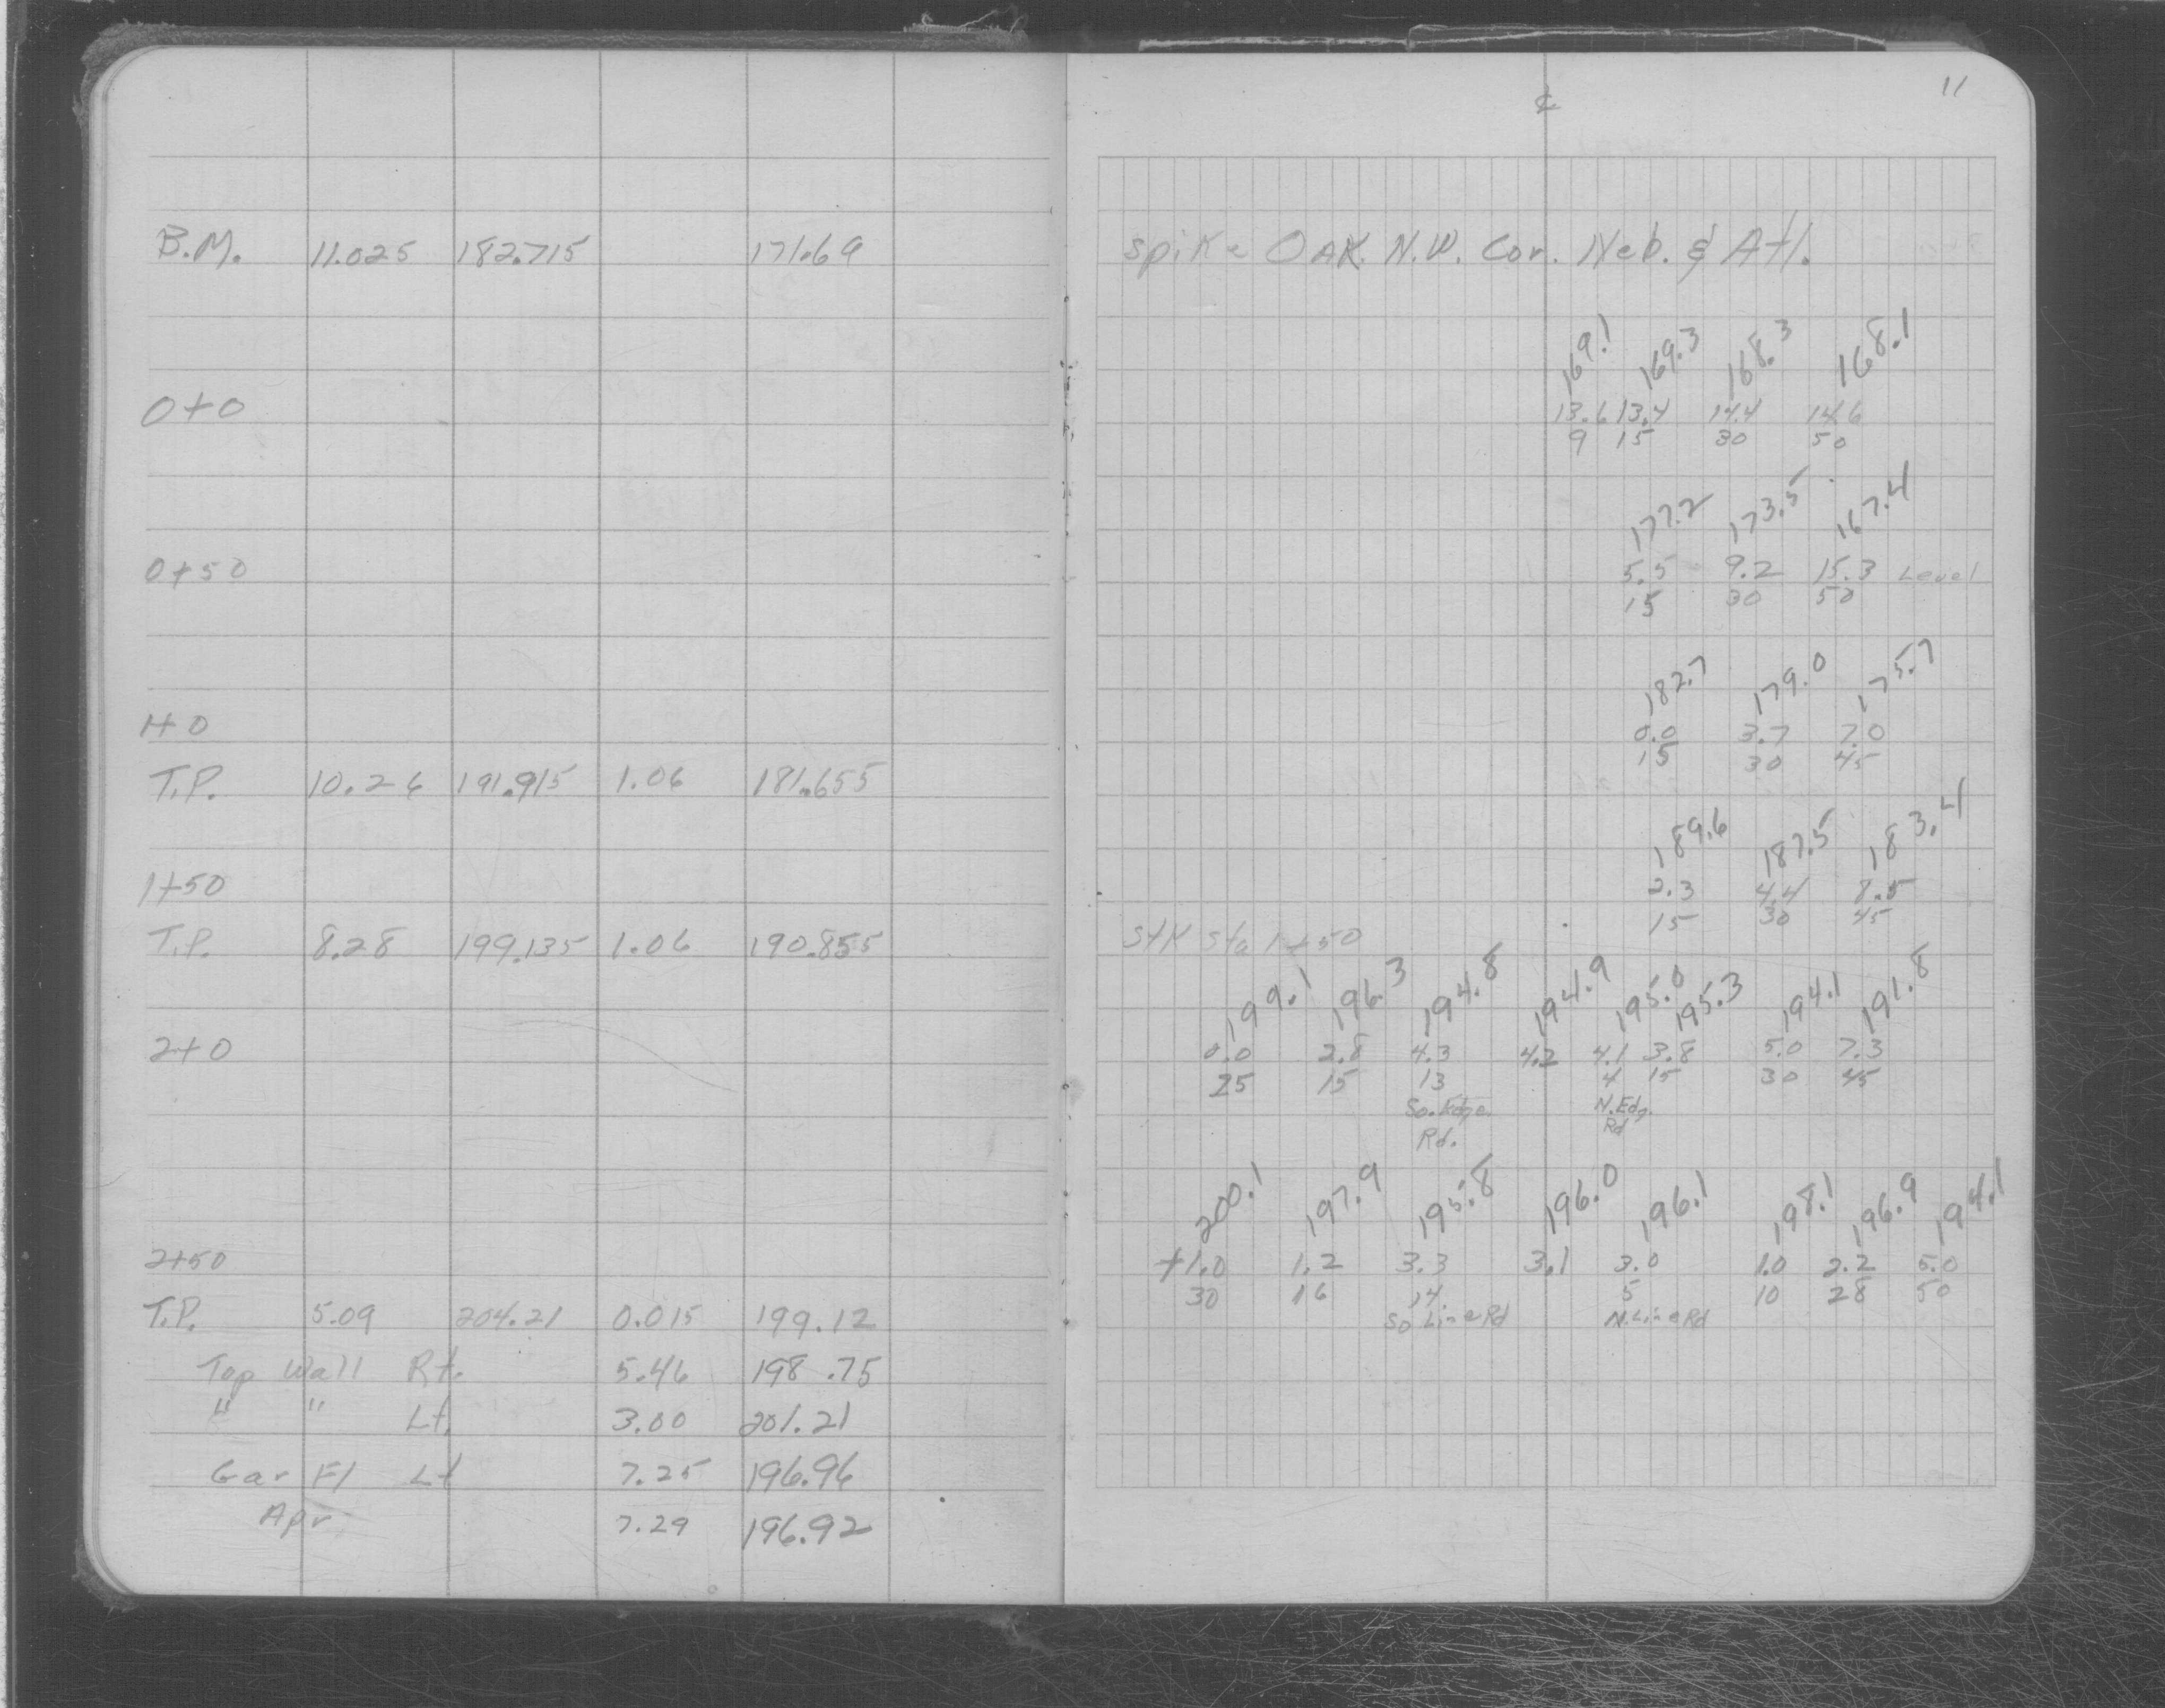 11
℄
B.M. 11.025 182.715 171.69
Spike OAK. N.W. Cor. Neb. & Atl.
169.1 169.3 168.3 168.1
0+0
13.6 13.4 14.4 14.6
9 15 30 50
177.2 173.5 167.4
0+50
5.5 9.2 15.3 Level
15 30 50
182.7 179.0 175.7
1+0
0.0 3.7 7.0
15 30 45
T.P. 10.26 191.915 1.06 181.655
189.6 187.5 183.4
1+50
2.3 4.4 8.5
15 30 45
T.P. 8.28 199.135 1.06 190.855
StK Sta 1+50
199.1 196.3 194.8 194.9 195.0 195.3 194.1 191.8
2+0
0.0 2.8 4.3 4.2 4.1 3.8 5.0 7.3
25 15 13 4 15 30 45
So. Edge N. Edg.
Rd. Rd
200.1 197.9 195.8 196.0 196.1 198.1 196.9 194.1
2+50
+1.0 1.2 3.3 3.1 3.0 1.0 2.2 5.0
30 16 14 5 10 28 50
So Line Rd N. Line Rd
T.P. 5.09 204.21 0.015 199.12
Top Wall Rt. 5.46 198.75
" " Lt. 3.00 201.21
Gar Fl Lt 7.25 196.96
Apr. 7.29 196.92